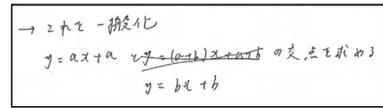 → これを一般化
y = ax + a と y = (a+b)x + a+b の交点を求める
y = bx + b